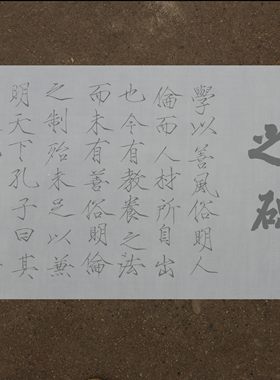 之
學以善風俗明人
倫而人材所自出
也今有教養之法
而未有善俗明倫
之制殆未足以兼
明天下孔子曰其